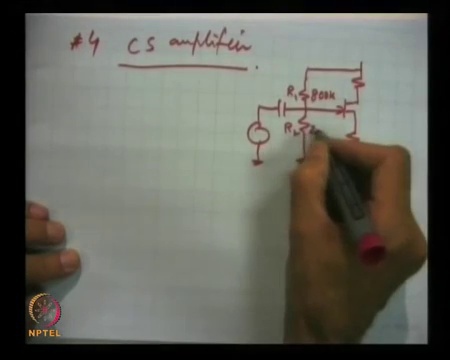 #4 CS amplifier
R1 800k
R2
NPTEL